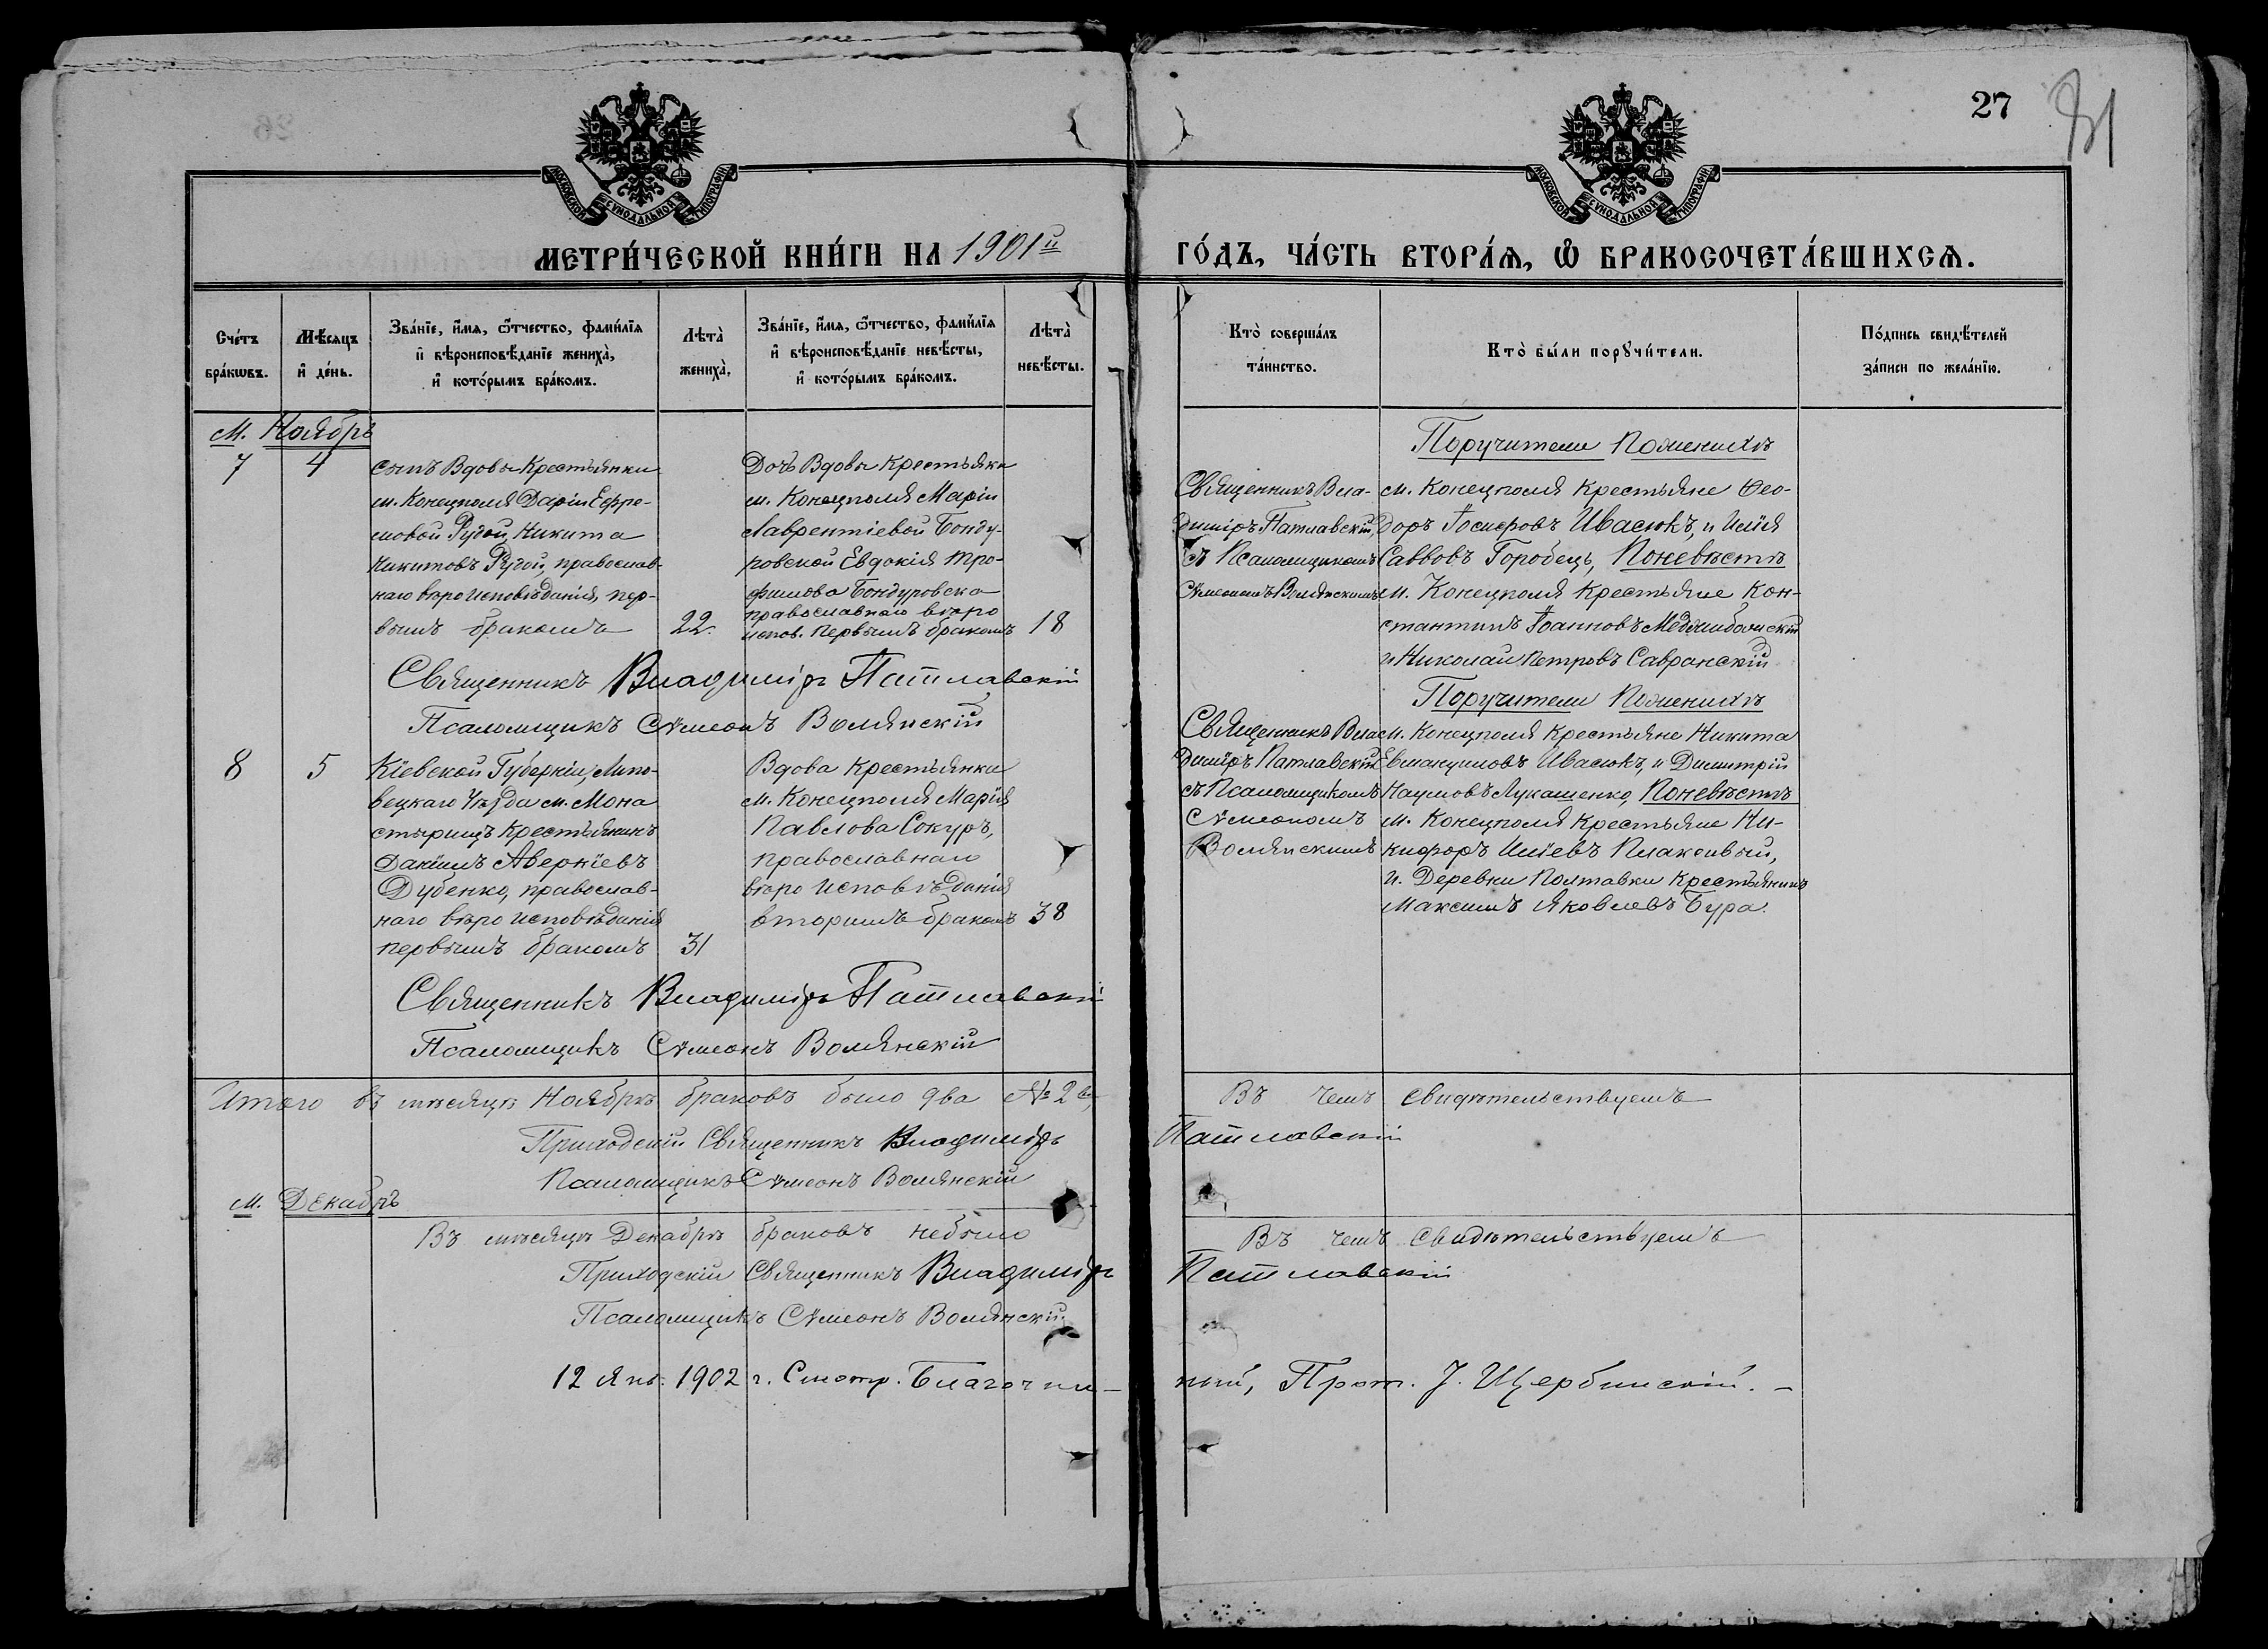 27
МЕТРИ́ЧЕСКОЙ КНИ́ГИ НА 1901й ГО́ДЪ, ЧА́СТЬ ВТОРА́Ѧ, Ѿ БРАКОСОЧЕТА́ВШИХСѦ.
МОСКОВСКОЙ СѴНОДАЛЬНОЙ ТИПОГРАФІИ
МОСКОВСКОЙ СѴНОДАЛЬНОЙ ТИПОГРАФІИ
Сче́тъ бра́кѡвъ.
Мѣ́сяцъ и҆ де́нь.
Зва́нїе, и҆́мѧ, ѻ҆́тчество, фами́лїѧ
и҆ вѣроисповѣ́данїе жениха̀,
и҆ кото́рымъ бра́комъ.
Лѣта̀ жениха̀.
Зва́нїе, и҆́мѧ, ѻ҆́тчество, фами́лїѧ
и҆ вѣроисповѣ́данїе невѣ́сты,
и҆ кото́рымъ бра́комъ.
Лѣта̀ невѣ́сты.
Кто̀ соверша́лъ
та́инство.
Кто̀ бы́ли порꙋчи́тели.
По́дпись свидѣ́телей
за́писи по жела́нїю.
М. Ноябрь
7
4
сынъ Вдовы Крестьянки
м. Конецполя Даріи Ефре-
мовой Рудой, Никита
Никитовъ Рудой, православ-
наго вѣроисповѣданія, пер-
вымъ бракомъ
22.
Дочь Вдовы Крестьянки
м. Конецполя Маріи
Лаврентіевой Бонду-
ровской Евдокія Тро-
фимова Бондуровска
православнаго вѣро
испов. первымъ бракомъ
18
Священникъ Вла-
диміръ Патлавскій,
съ Псаломщикомъ
Сѵмеономъ Волянскимъ
Поручители По женихѣ
м. Конецполя Крестьяне Ѳео-
доръ Іосифовъ Ивасюкъ, и Илія
Саввовъ Горобецъ, По невѣстѣ
м. Конецполя Крестьяне Кон-
стантинъ Іоанновъ
и Николай Петровъ Савранскій
Священникъ Владиміръ Патлавскій
Псаломщикъ Сѵмеонъ Волянскій
8
5
Кіевской Губерніи, Липо-
вецкаго Уѣзда м. Мона
стырищъ Крестьянинъ
Даніилъ Аверкіевъ
Дубенко, православ-
наго вѣро исповѣданія
первымъ бракомъ
31
Вдова Крестьянки
м. Конецполя Марія
Павлова Сокуръ,
православнаго
вѣро исповѣданія
вторимъ бракомъ
38
Священникъ Вла
диміръ Патлавскій
съ Псаломщикомъ
Сѵмеономъ
Волянскимъ
Поручители По женихѣ
м. Конецполя Крестьяне Никита
Евмануиловъ Ивасюкъ, и Димитрій
Наумовъ Лукашенко, По невѣстѣ
м. Конецполя Крестьяне Ни-
кифоръ Иліевъ Плаксивый,
и Деревни Полтавки Крестьянинъ
Максимъ Яковлевъ Бура.
Священникъ Владиміръ Патлавскій
Псаломщикъ Сѵмеонъ Волянскій
Итого въ мѣсяцѣ Ноябрѣ браковъ было два № 2й, Въ чемъ свидѣтельствуемъ
Приходскій Священникъ Владиміръ Патлавскій
Псаломщикъ Сѵмеонъ Волянскій
М. Декабрь
Въ мѣсяцѣ Декабрѣ браковъ небыло Въ чемъ свидѣтельствуемъ
Приходскій Священникъ Владиміръ Патлавскій
Псаломщикъ Сѵмеонъ Волянскій
12 Янв. 1902 г. Смотр. Благочин- ный, Прот. І. Щербинскій.